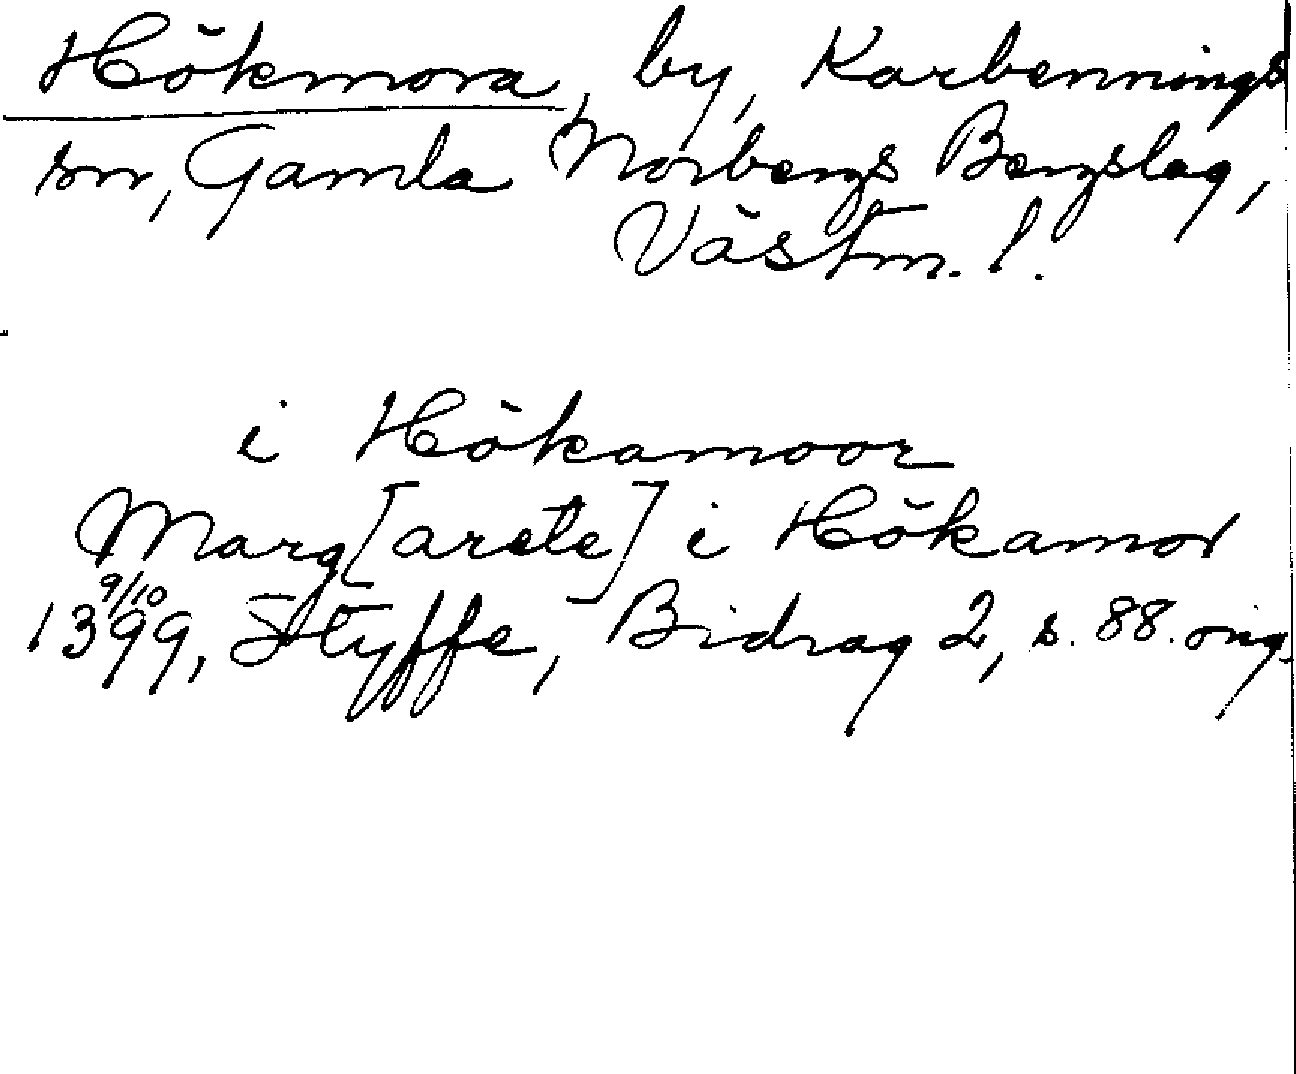 Hökmora, by, Karbennings
sn, Gamla Norbergs Bergslag,
Västm. l.
i Hökamoor
Marg[arete] i Hökamor
1399 9/10, Styffe, Bidrag 2, s. 88. orig.